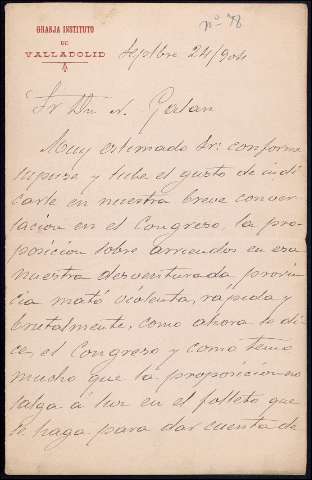 nº 78
GRANJA INSTITUTO
DE
VALLADOLID
Septbre 24/904
Sr Dn N. Galan
Muy estimado Sr: conforme
supuse y tube el gusto de indi
carte en nuestra breve conver
sacion en el Congreso, la pro
posicion sobre arriendos en esa
nuestra desventurada provin
cia mató violenta, rápida y
brutalmente, como ahora se di
ce, el Congreso y como temo
mucho que la proposicion no
salga á luz en el folleto que
se haga para dar cuenta de